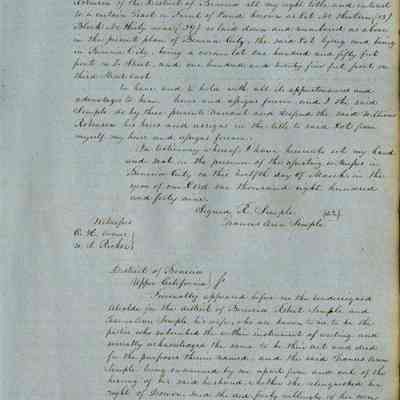 Robinson of the District of Benicia all my right title and interest
to a certain Tract or Parcel of Land known as Lot No thirteen (13)
Block No thirty seven (37) as laid down and numbered as above
in the present plan of Benicia City, the said lot lying and being
in Benicia City, being a corner lot one hundred and fifty feet
front on D Street, and one hundred and twenty five feet front on
third Street east
To have and to hold with all its appurtenances and
advantages to him heirs and assigns forever, and I the said
Semple do by these presents Warrant and Defend the said William
Robinson his heirs and assigns in the title to said Lot from
myself my heirs and assigns forever.
In testimony whereof I have hereunto set my hand
and seal in the presence of the attesting witnesses in
Benicia City on this twelfth day of March in the
year of our Lord one thousand eight hundred
and forty nine.
Signed R. Semple
Frances Ann Semple
Witness
District of Benicia
Upper California
Personally appeared before me the undersigned
Alcalde in the district of Benicia Robert Semple and
Semple his wife, who are known to me to be the
parties who subscribed the within instrument of writing and
severally acknowledged the same to be their act and deed
for the purposes therein named, and the said Frances Ann
Semple being examined by me apart from and out of the
hearing of her said husband whether she relinquished her
right of Dower, said she did freely willingly of her own